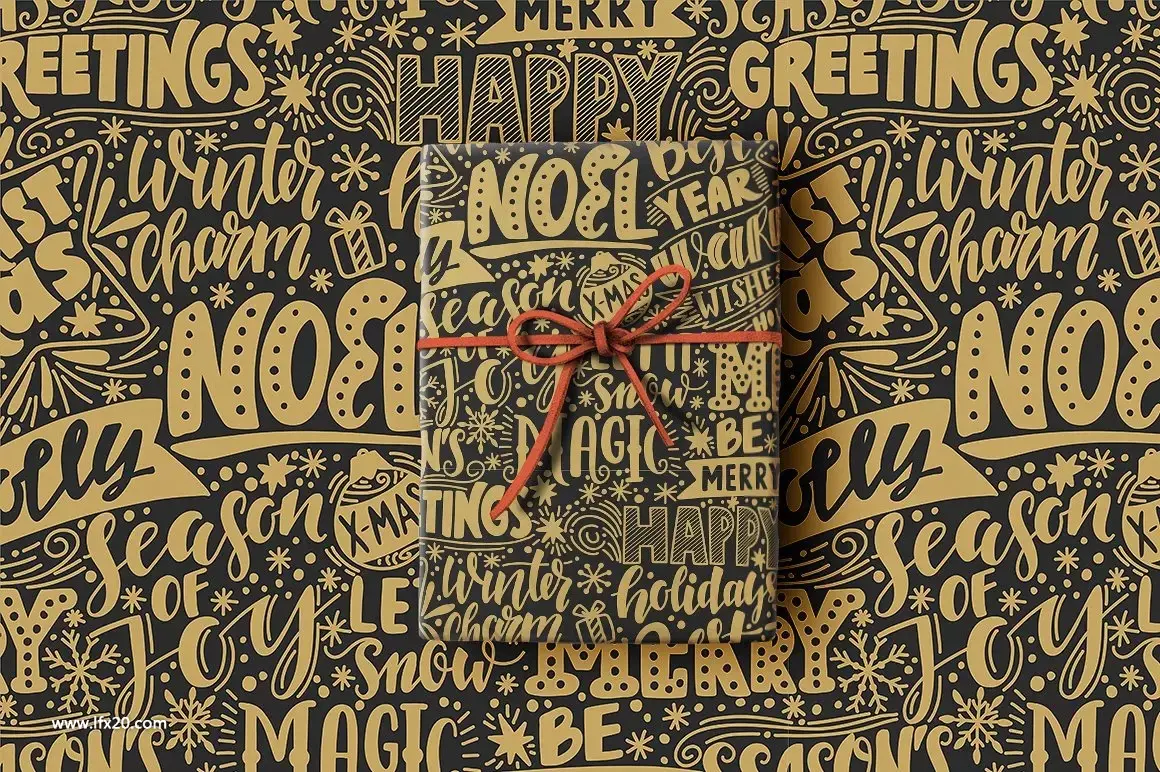 MERRY
GREETINGS
HAPPY
GREETINGS
winter
charm
NOEL
BEST
YEAR
WISHES
season
X-MAS
OF
JOY
snow
M
BE
MAGIC
MERRY
HAPPY
winter
holidays
charm
NOEL
season
OF
JOY
X-MAS
snow
MERRY
MAGIC
BE
season
OF
JOY
MAGIC
SEASON'S
www.lfx20.com